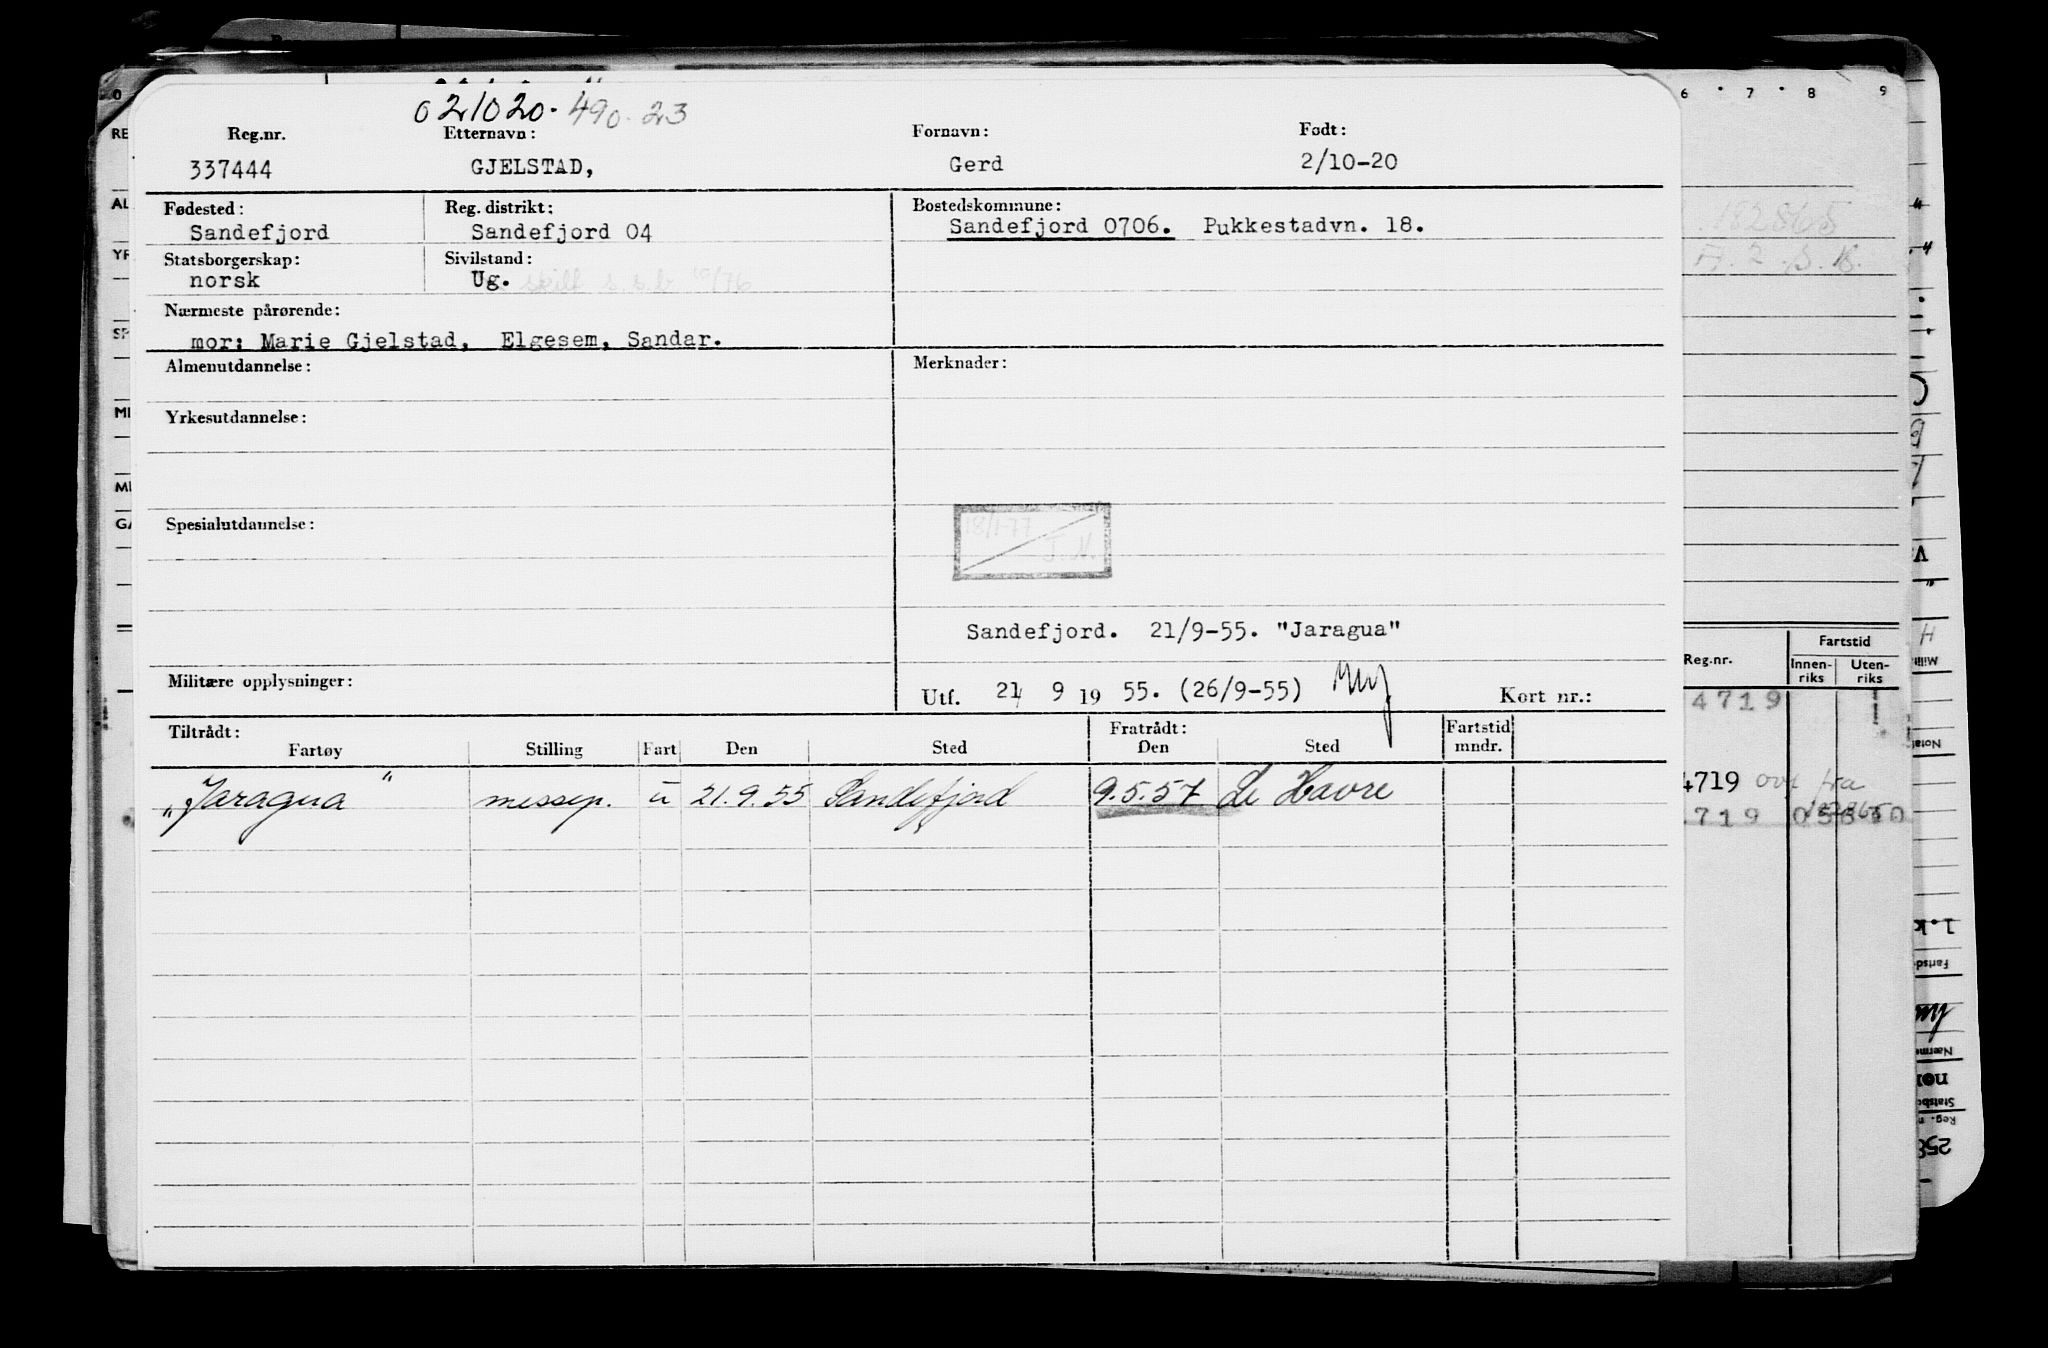 021020. 490.23
Reg.nr. Etternavn: Fornavn: Født:
337444 GJELSTAD, Gerd 2/10-20
Fødested: Reg. distrikt: Bostedskommune:
Sandefjord Sandefjord 04 Sandefjord 0706. Pukkestadvn. 18.
Statsborgerskap: Sivilstand:
norsk Ug. skilt s.s.b. 10/76
Nærmeste pårørende:
mor: Marie Gjelstad, Elgesem, Sandar.
Almenutdannelse: Merknader:
Yrkesutdannelse:
Spesialutdannelse:
18/1-77
J.N.
Sandefjord. 21/9-55. "Jaragua"
Militære opplysninger:
Utf. 21 9 19 55. (26/9-55) Kort nr.:
Tiltrådt: Fratrådt: Fartstid
Fartøy Stilling Fart Den Sted Den Sted mndr.
„Jaragua" messep. u 21.9.55 Sandefjord 9.5.57 Le Havre
6 7 8 9
182865
Fartstid
Reg.nr. Innen-riks Uten-riks
4719
4719 ovf fra
719